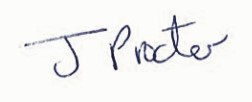 J Procter